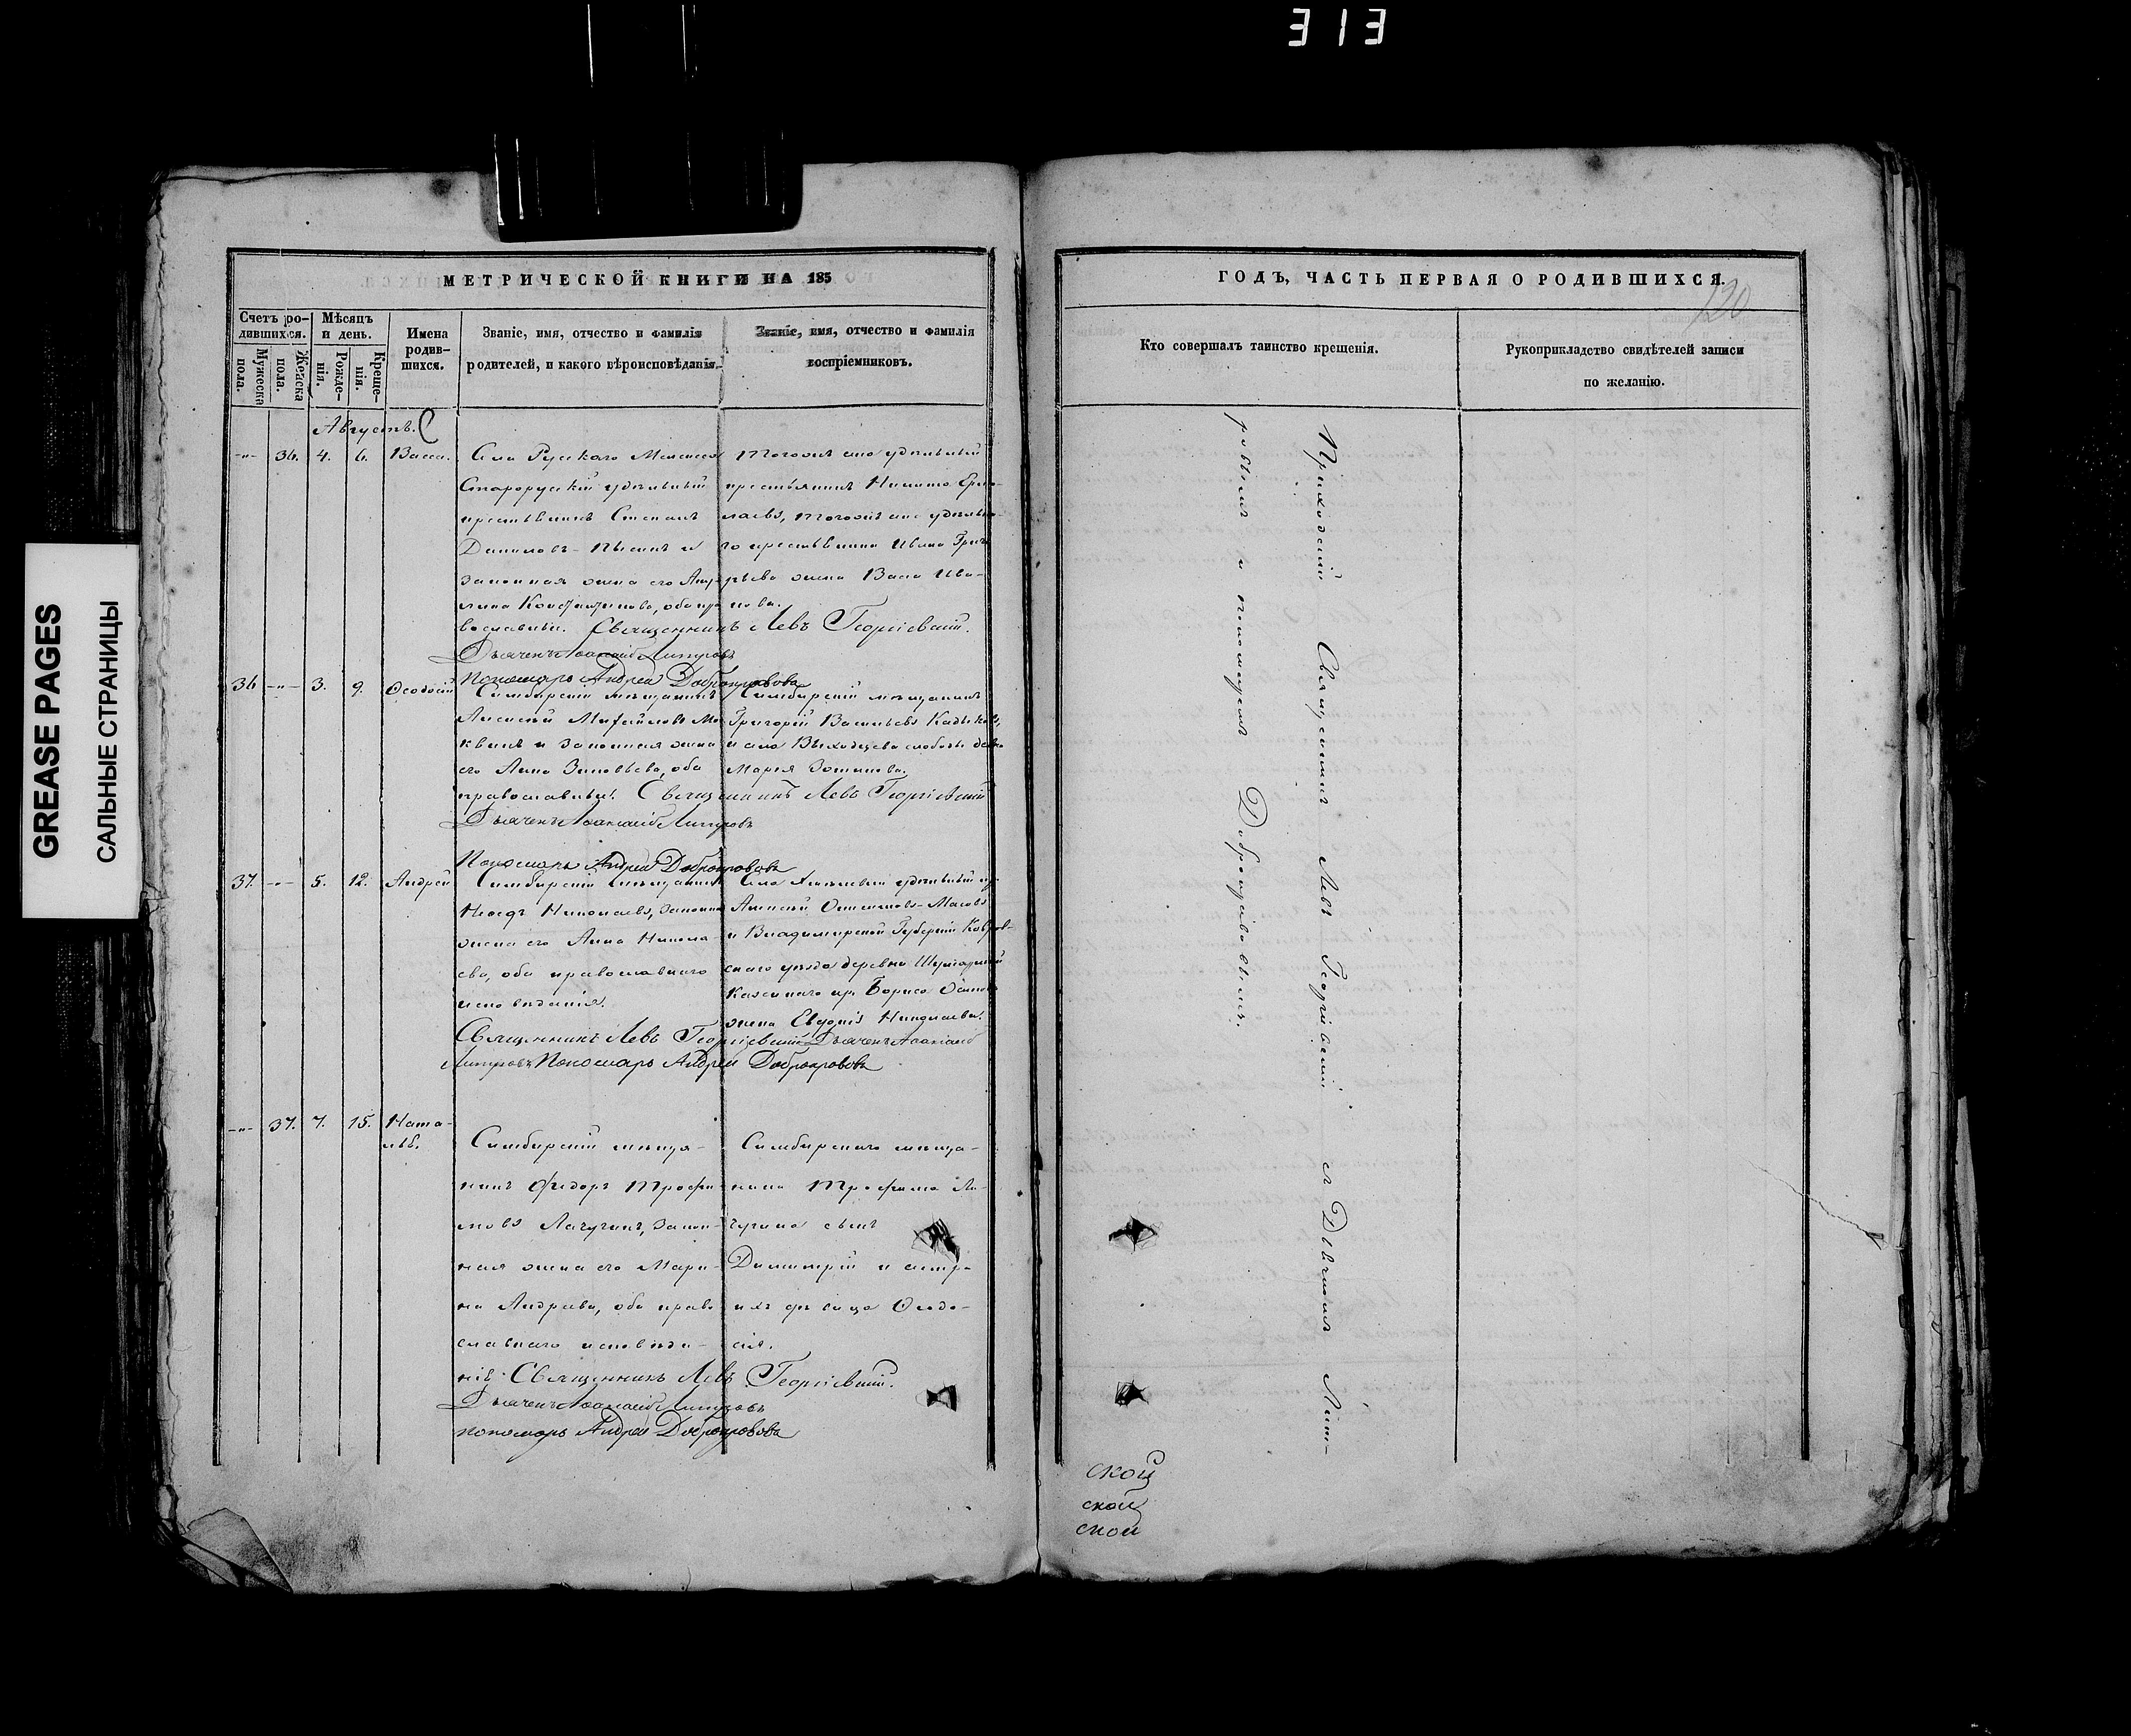 313
GREASE PAGES
САЛЬНЫЕ СТРАНИЦЫ
МЕТРИЧЕСКОЙ КНИГИ НА 185
Счетъ ро-
дившихся.
Мужеска
пола.
Женска
пола.
Мѣсяцъ
и день.
Рожде-
нія.
Креще-
нія.
Имена
родив-
шихся.
Званіе, имя, отчество и фамилія
родителей, и какого вѣроисповѣданія.
Званіе, имя, отчество и фамилія
воспріемниковъ.
Августъ.
-"- 36. 4. 6. Васса.
Села Русскаго
Старорусскій удѣльный
крестьянинъ Степанъ
Даниловъ
законная жена его
Константинова, оба пра
вославные. Священникъ Левъ Георгіевскій.
Пономарь Андрей Доброправовъ
Тогоже удѣльный
крестьянинъ Никита
лаевъ, тогоже удѣльна-
го крестьянина Ивана Григо
рьева жена Васса Ива-
нова.
36 -"- 3. 9. Ѳеодосій
Симбирскій мѣщанинъ
Алексѣй Михайловъ Мо
квинъ и законная жена
его Анна Зиновьева, оба
православные. Священникъ Левъ Георгіевскій
Пономарь Андрей Доброправовъ
Симбирскій мѣщанинъ
Григорій Васильевъ
Марья
37. -"- 5. 12. Андрей
Симбирскій мѣщанинъ
Николаевъ, законна
жена его Анна Никола-
ева, оба православнаго
исповѣданія.
Священникъ Левъ Георгіевскій
Пономарь Андрей Доброправовъ
Села удѣльный кр.
Алексѣй
и Владимірской Губерніи Ковров-
скаго уѣзда деревни
Казеннаго кр. Бориса Осипо
жена Евдокія Николаева.
-"- 37. 7. 15. Ната-
лья.
Симбирскій мѣща-
нинъ Ѳедоръ Трофи
мовъ Лачугинъ, закон-
ная жена его Мари-
на Андреева, оба право
славнаго исповѣда-
нія. Священникъ Левъ Георгіевскій.
пономарь Андрей Доброправовъ
Симбирскаго мѣща-
нина Трофима Ла-
чугина сынъ
Димитрій и сестра
ихъ дѣвица Ѳеодо-
сія.
ГОДЪ, ЧАСТЬ ПЕРВАЯ О РОДИВШИХСЯ.
120
Кто совершалъ таинство крещенія.
Рукоприкладство свидѣтелей записи
по желанію.
Приходскій Священникъ Левъ Георгіевскій съ Дьячкомъ Лит-
ровымъ и пономаремъ Доброправовымъ.
ской
ской
ской